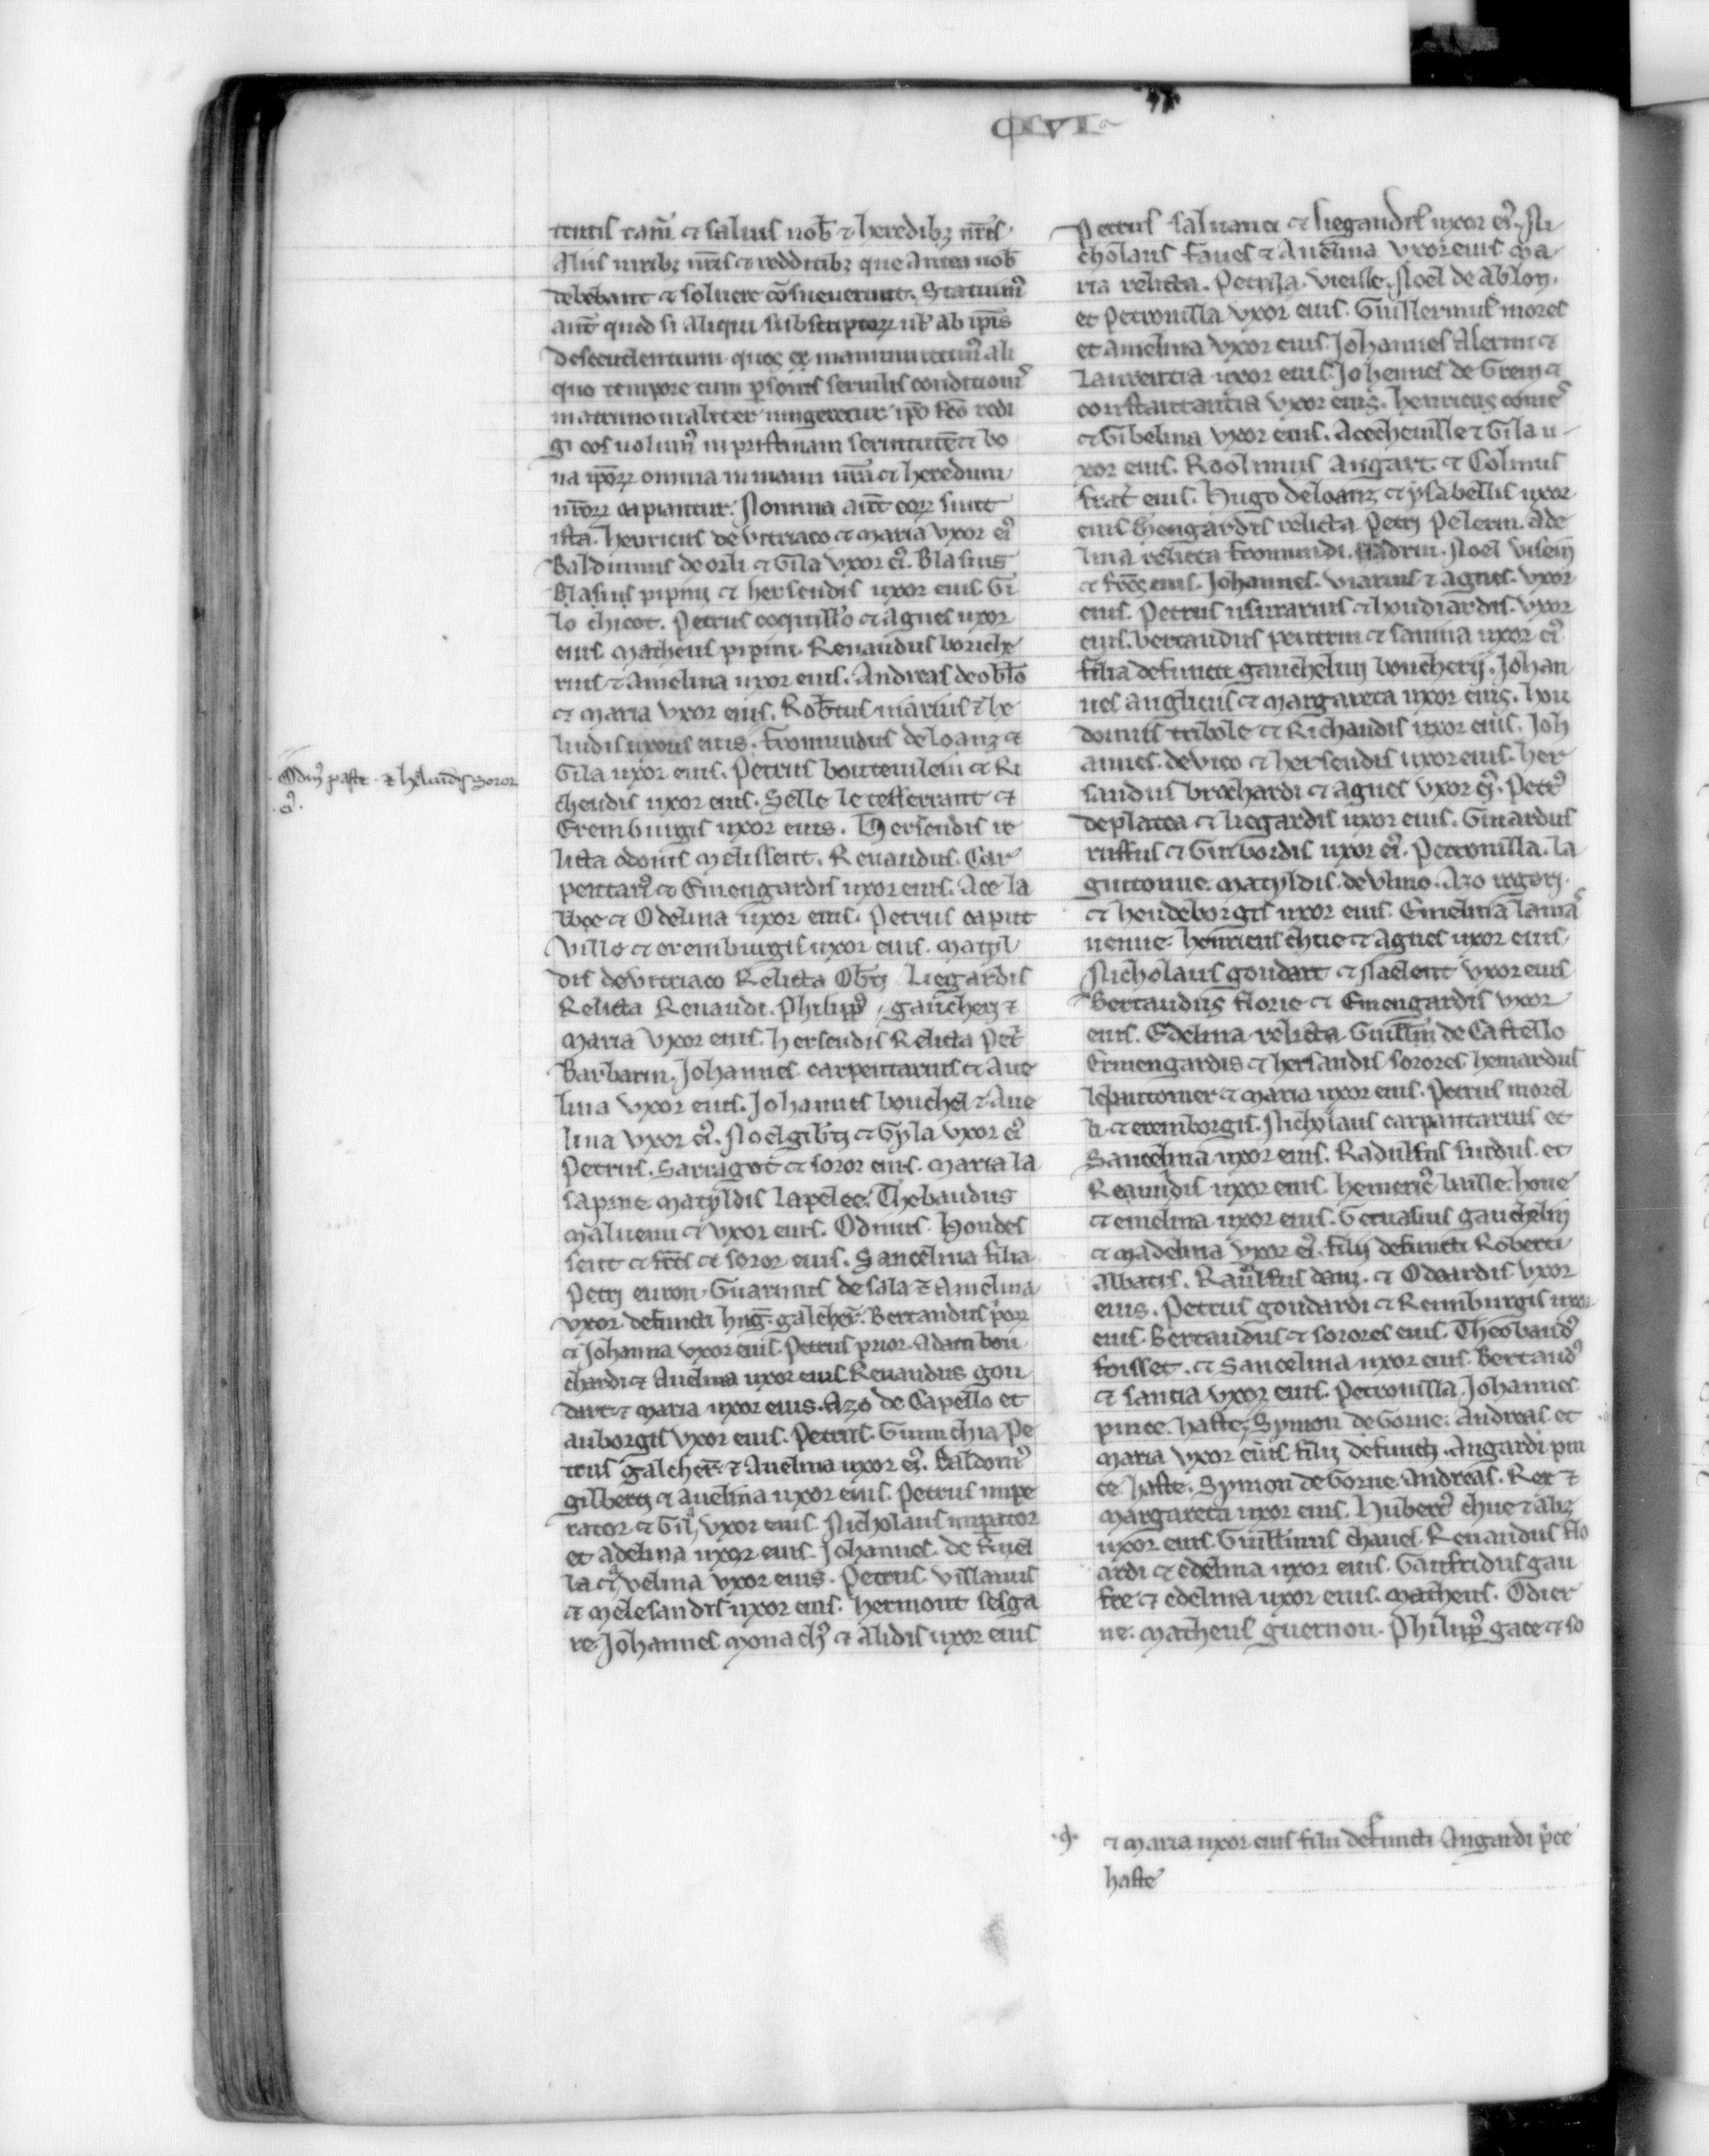 CIVIa
tentis tam̃ et saluis nob̃ ⁊ heredibꝫ nr̃is.
Aliis iuribꝫ nr̃is et redditibꝫ que antea nob̃
debebant et soluere cõsueuerunt. Statuimꝰ
aut̃ quod si aliqui subscriptoꝝ ul̃ ab ip̃is
descendentium quos ex manumittimꝰ ali
quo tempore cum ꝑsonis seruilis conditionis
matrimonialiter iungeretur ip̃o fc̃o redi
gi eos uolumꝰ in pristinam seruitutẽ et bo
na ip̃oꝝ omnia in manu nr̃a et heredum
nr̃oꝝ capiantur. Nomina aut̃ eoꝝ sunt
ista. henricus de Vitriaco et maria vxor eiꝰ
Balduinus de orli et Gila vxor eiꝰ. Blasius
Blasius pipini et hersendis uxor eius. Gi
lo chicot. Petrus coquillo et agnes uxor
eius. Matheus pipini. Renaudus boriche
rius et Amelina uxor eius. Andreas de
et maria vxor eius. Rob̃tus marius ⁊ he
luidis uxoris eius. fromundus de loanz et
Gila uxor eius. Petrus bouteuilein et Ri
cheudis uxor eius. Selle le tefferrant et
Eremburgis uxor eius. Hersendis re
licta odonis Melissent. Renaudus. Car
pentarꝰ et Ermengardis uxor eius. Ace la
et Odelina uxor eius. Petrus caput
ville et eremburgis uxor eius. matyl
dis de vitriaco Relicta Liegardis
Relicta Renaudi. Philippꝰ gaucherij ⁊
Maria vxor eius. hersendis Relicta Pet̃
Barbarin. Johannes carpentarius et Aue
lina vxor eius. Johannes bouchel ⁊ Aue
lina vxor eiꝰ. Noel gib̃tj et Gyla vxor eiꝰ
Petrus. Sarragot et soror eius. maria la
sapine matyldis lapelee. Thebaudus
maluenu et vxor eius. Odinus Hondes
sent et fr̃es et soror eius. Sancelina filia
Petri euron. Guarinus de sala ⁊ Amelina
vxor defuncti hug̃. galcher̃. Bertaudus
et Johanna vxor eius. Petrus prior. Adam bou
chardi et Auelina uxor eius Renaudus gou
dart ⁊ maria uxor eius. Azo de Capello et
auborgis vxor eius. Petrus. Guinchia Pe
trus galcher̃ ⁊ Auelina uxor eiꝰ. Baldoinꝰ
gilberti et Auelina uxor eius. Petrus impe
rator et Gila vxor eius. Nicholaus imꝑator
et adelina uxor eius. Johannes de
la et auelina vxor eius. Petrus villanus
et Melesandis uxor eius. hermont sesga
re. Johannes Monachꝰ et Alidis uxor eius
Odinꝰ paste ⁊ heluidis soror
eiꝰ.
Petrus saluanci et liegandis uxor eiꝰ. Ni
cholaus faues et Auelina vxor eius Ma
ria relicta. Petrila. Vieille. Noel de ablon.
et Petronilla vxor eius. Guillermus mores
et Amelina vxor eius. Johannes Alermi et
Laurentia uxor eius. Johennes de Grem et
constantantia vxor eius. henricus
et Gibelina vxor eius. Acecheuille ⁊ Gila u
xor eius. Roolinus Angart. et Colinus
frat̃ eius. Hugo deloanz et ysabellis uxor
eius Hengardis relicta. Petri Pelerin. ade
lina relicta fromundi. Noel
et eius. Johannes. viarius ⁊ agnes. vxor
eius. Petrus usurarius et houdiardis. vxor
eius. bertaudus et sanna uxor eiꝰ
filia defuncti gauchelini boucherij. Johan
nes anglicus et margareta uxor eius. hou
douinus tribole et Richaudis uxor eius. Joh
annes. de vico et hersendis uxor eius. her
landus brochardi et agnes vxor eiꝰ. Petrꝰ
de platea et liegardis uxor eius. Guiardus
ruffus et Guibordis uxor eiꝰ. Petronilla. la
guitonne. matyldis. de vlmo. Azo rogerj.
et hendeborgis uxor eius. Emelina
uenue. henricus chue et agnes uxor eius.
Nicholaus goudart et vxor eius
Bertaudus florie et Ermengardis vxor
eius. Edelina relicta. Guill̃mi de Castello
Ermengardis et hersandis sorores hemardus
et maria uxor eius. Petrus morel
li. et eremborgis. Nicholaus carpantarius et
Sancelina uxor eius. Radulfus surdus. et
uxor eius. hemericꝰ baille. houe
et emelina uxor eius. Geruasius gauchelin
et Madelina vxor eiꝰ. filij defuncti Roberti
Abbatis. Raulfus danz. et Odeardis vxor
eius. Petrus goudardi et Remburgis uxor
eius. Bertaudus et sorores eius. Theobaudꝰ
foisset. et Sancelina uxor eius. Bertaudꝰ
et sancia vxor eius. Petronilla. Johannes
pince. haste. Symon de Gorne. andreas et
maria vxor eius filij defuncti. Angardi pin
ce. haste. Symon de Gorne Andreas. Rex ⁊
Margareta uxor eius. hubertꝰ chue ⁊
uxor eius. Guill̃mus chauel. Renaudus flo
ardi et edelina uxor eius. Gaufridus gau
fre et edelina uxor eius. Matheus. Odier
ne. matheus guernon. Philippꝰ gace et so
et maria uxor eius filii defuncti Angardi pĩce
haste